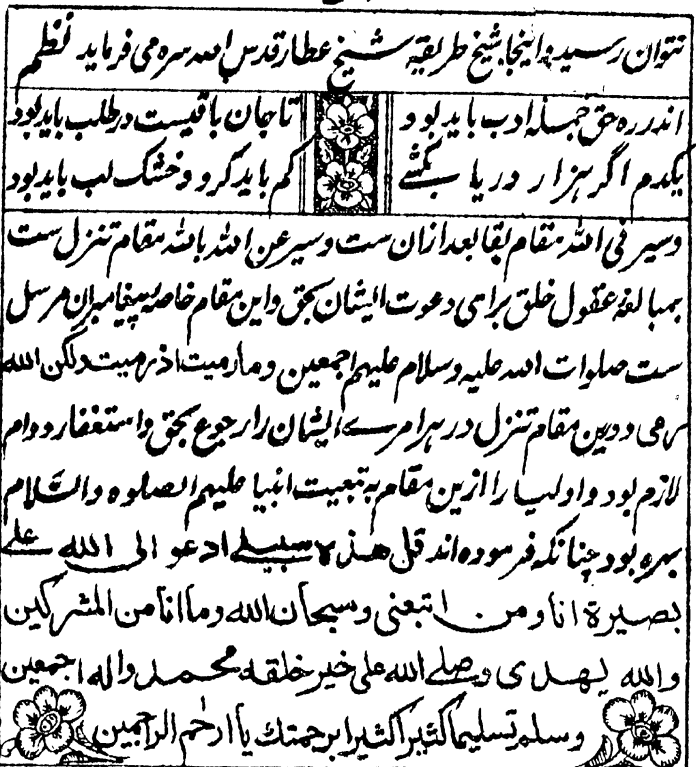 نتوان رسید واینجا شیخ طریقه شیخ عطار قدس الله سره می فرماید نظم
اندر ره حق جمله ادب باید بود تا جان باقیست در طلب باید بود
یکدم اگر هزار دریا بکشے کم باید کرد و خشک لب باید بود
وسیر فی الله مقام بقا بعد ازان ست وسیر عن الله بالله مقام تنزل ست
بمبالغه عقول خلق برای دعوت ایشان بحق واین مقام خاصه پیغامبران مرسل
ست صلوات الله علیه وسلام علیهم اجمعین وما رمیت اذ رمیت ولکن الله
رمی ودرین مقام تنزل در هر امرے ایشان را رجوع بحق واستغفار دوام
لازم بود واولیا را ازین مقام به تبعیت انبیا علیهم الصلوه والسّلام
بهره بود چنانکه فرموده اند قل هذه سبیلے ادعو الی الله علے
بصیرة انا ومن اتبعنی وسبحان الله وما انا من المشرکین
والله یهدی وصلے الله علی خیر خلقه محمد واله اجمعین
وسلم تسلیما کثیرا کثیرا برحمتك یا ارحم الراحمین